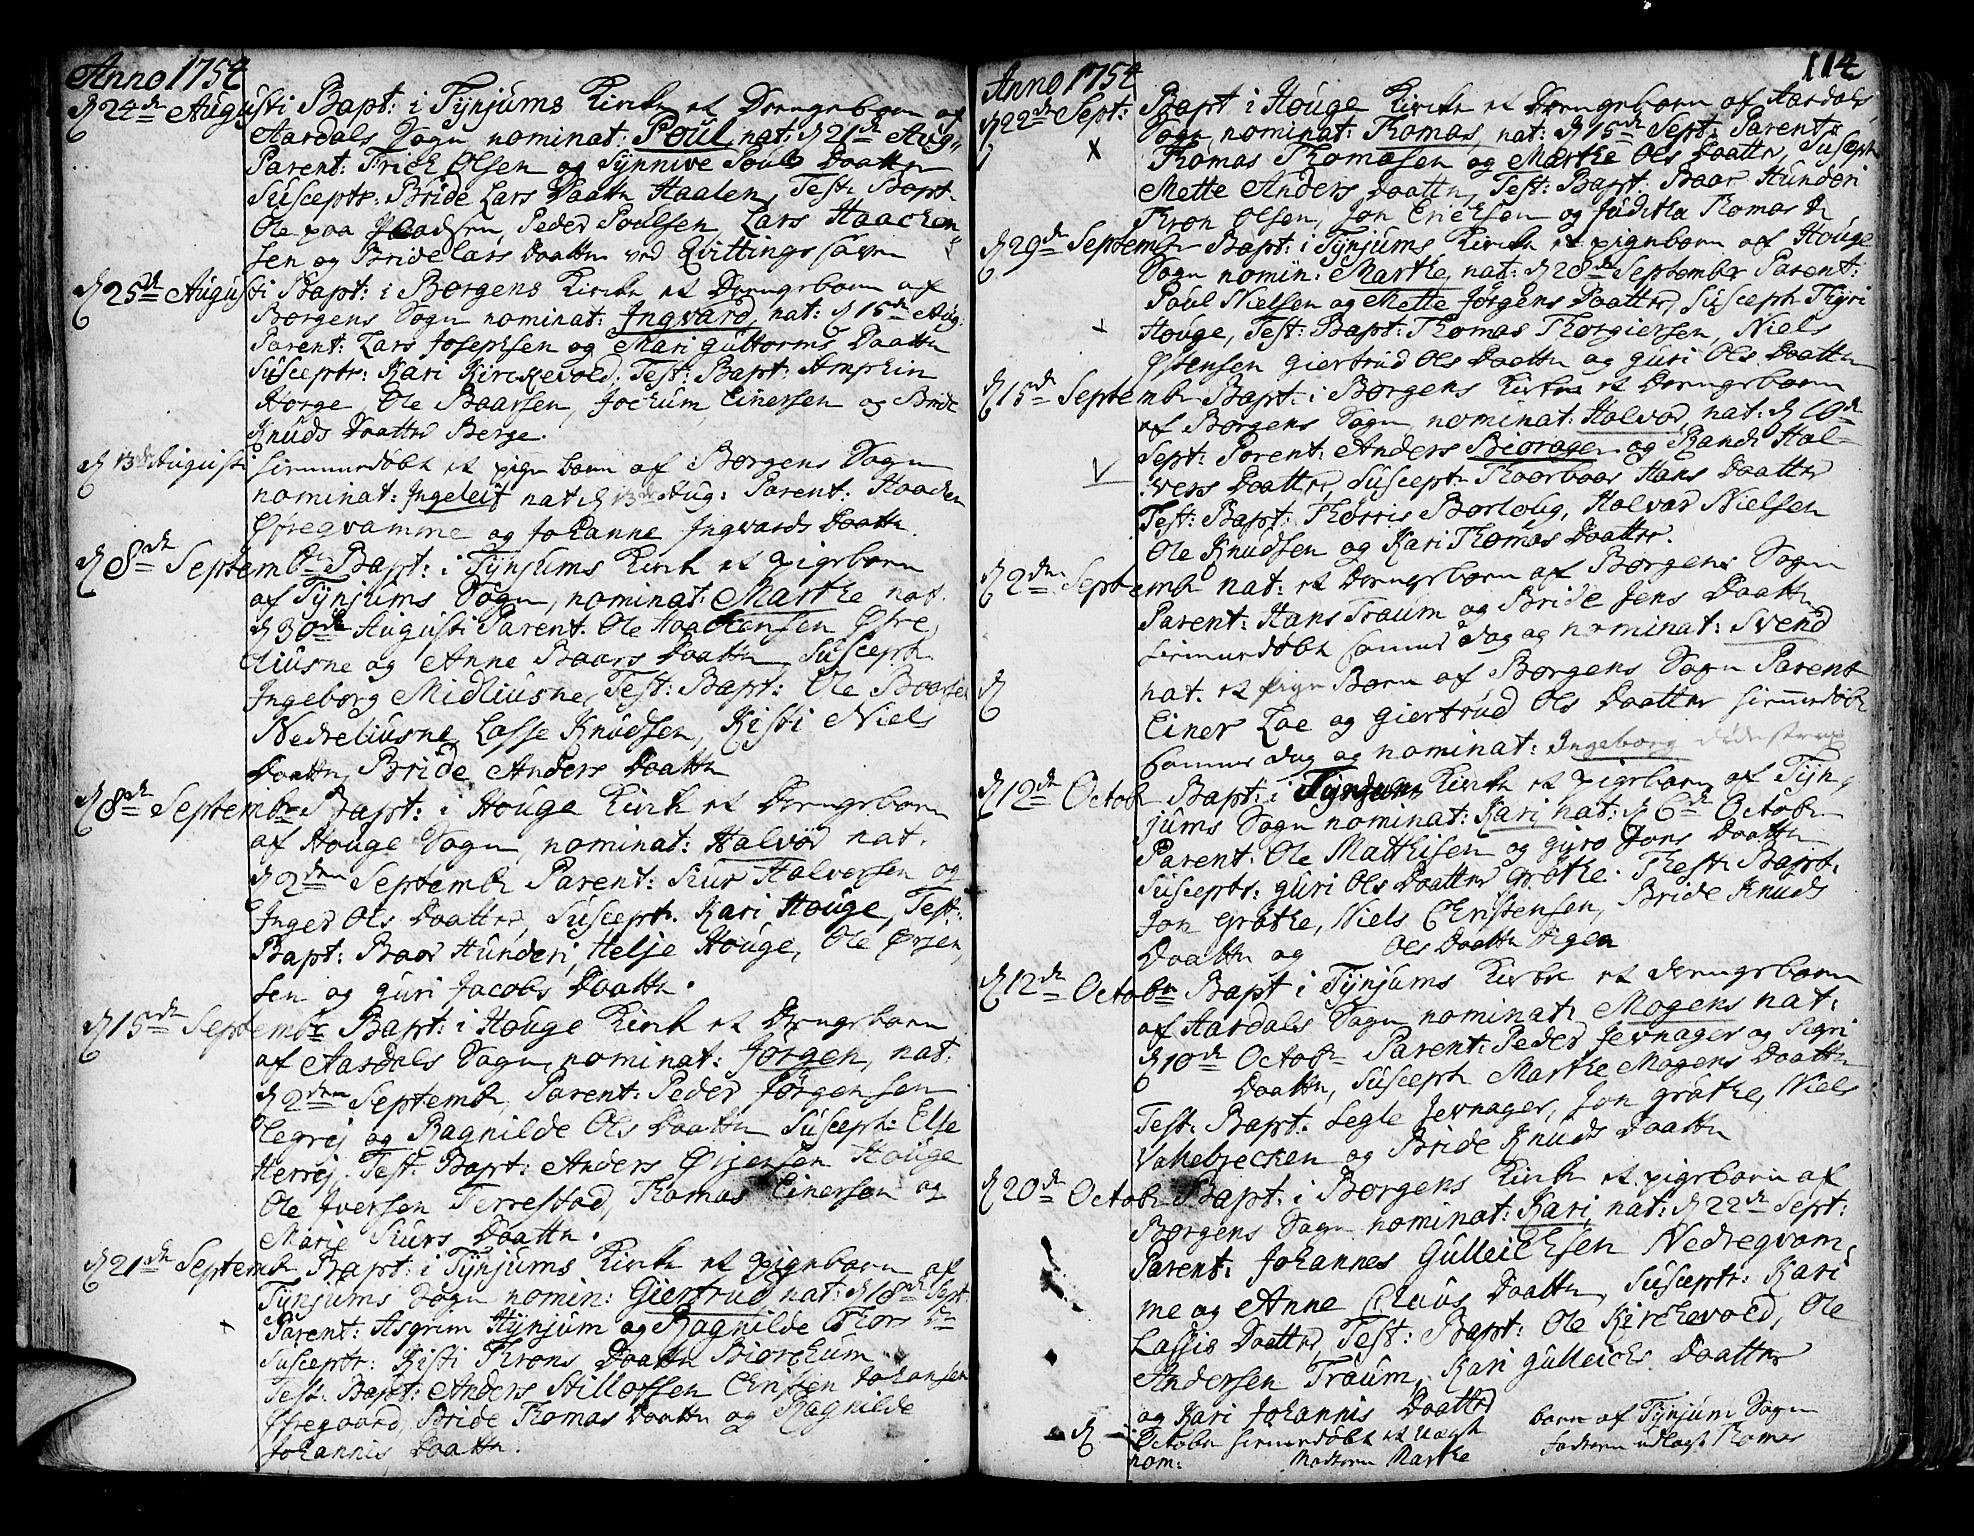 Anno 1754
d 24de Augusti Bapt: i Tÿnjums Kirke et Drengebarn af
Aardals Sogn nominat: Poul, nat: d 21de Aug:
Parent: Erich Olsen og Sÿnnive Pouls Daatter
Susceptr: Bride Lars Daatter Haalen, Test: Bapt:
Ole paa, Peder Poulsen, Lars Haachen
sen og Bride Lars Daatter ved Qvittingshaven
d 25de Augusti Bapt: i Borgens Kirke et Drengebarn af
Borgens Sogn nominat: Ingvard, nat: d 15de Aug:
Parent: Lars Josephsen og Mari Guttorms Daatter
Susceptr: Kari Kirckevold, Test: Bapt: Amphin
Horge, Ole Baarsen, Jochum Einersen og Bride
Knuds Daatter Berge.
d 13de Augusti hiemmedøbt et pigebarn af Borgens Sogn
nominat: Ingeleif nat d 13de Aug: Parent: Haaden
Øfregvamme og Johanne Ingvards Daatter.
d 8de Septembr Bapt: i Tÿnjums Kirke et pigebarn
af Tÿnjums Sogn, nominat: Marthe nat.
d 30de Augusti Parent: Ole Haachensen Øfre,
liusne og Anne Baars Daatter, Suscept:
Ingeborg Midliusne, Test: Bapt: Ole Baarsen
Nedreliusne, Lasse Knudsen, Kisti Niels
Daatter, Bride Anders Daatter
d 8de Septembr Bapt: i Houge Kirke et Drengebarn
af Houge Sogn, nominat: Halvor nat.
d 2den Septembr Parent: Siur Halversen og
Inger Ols Daatter, Suscept: Kari Houge, Test:
Bapt: Baar Hunderi, Helje Houge, Ole Ørjen,
sen og Guri Jacobs Daatter.
d 15de Septembr Bapt: i Houge Kirke et Drengebarn
af Aardals Sogn, nominat: Jørgen, nat:
d 2den Septembr, Parent: Peder Jørgensen
Legrej og Ragnilde Ols Daatter Suscept: Else
Herrej, Test: Bapt: Anders Ørjensen Houge
Ole Iversen Terrestad, Thomas Einersen og
Marie Siurs Daatter.
d 21de Septembr Bapt: i Tÿnjums Kirke et pigebarn af
Tÿnjums Sogn nomin: Giertrud nat: d 18de Sept
Parent: Asgrim Hÿnjum og Ragnilde Thors D
Susceptr: Kisti Throns Daatter Biørchum
Test: Bapt: Anders Stillofsen Christen Johansen
Øfregaard, Bride Thomas Daatter og Ragnilde
Johannis Daatter.
Anno 1754
114
d 22de Sept: Bapt i Houge Kirke et Drengebarn af Aardals
Sogn nominat: Thomas, nat: d 15de Sept: Parent:
Thomas Thomasen og Marthe Ols Daatter, Suscept
Mette Anders Daatter, Test: Bapt: Baar Hunderi
Thron Olsen, Jon Erichsen og Juditha Thomas D
d 29de Septembr Bapt: i Tÿnjums Kirke et pigebarn af Houge
Sogn nomin: Marthe, nat: d 28de Septembr Parent:
Poul Nielsen og Mette Jørgens Daatter, Suscept: Thÿri
Houge, Test: Bapt: Thomas Thorgiersen, Niels
Østensen Giertrud Ols Daatter og Guri Ols Daatter
d 15de Septembr Bapt: i Borgens Kirke et Drengebarn
af Borgens Sogn, nominat: Halvor, nat: d 10de
Sept: Parent: Anders Biorage og Randi Hal-
vers Daatter, Suscept: Thoorboor Hans Daatter
Test: Bapt: Thorris Borloug, Halvar Nielsen
Ole Knudsen og Kari Thomas Daatter.
d 2den Septembr nat: et Drengebarn af Borgens Sogn
Parent: Hans Traum og Bride Jens Daatter
hiemmedøbt samme dag og nominat: Svend
d nat. et pige Barn af Borgens Sogn Parent
Einer Loe og Giertrud Ols Daatter hiemmedøbt
samme dag og nominat: Ingeborg
d 12de Octobr Bapt: i Tÿnjums Kirke et pigebarn af Tÿn,
jums Sogn nominat: Kari nat: d 6de Octobr
Parent: Ole Mathisen og Gÿro Jons Daatter
Susceptr: Guri Ols Daatter Grøthe. Thest: Bapt:
Jon Grøthe, Niels Christensen, Bride Knuds
Daatter og Ols Daatter Vigen
d 12de Octobr Bapt i Tÿnjums Kirke et drengebarn
af Aardals Sogn nominat: Mogens nat:
d 10de Octobr Parent: Peder Jevnager og Sigri
Daatter, Suscept Marthe Mogens Daatter
Test: Bapt: Legle Jevnager, Jon Grøthe, Niels
Vahebrecken og Bride Knuds Daatter
d 20de Octobr Bapt: i Borgens Kirke et pigebarn af
Borgens Sogn nominat: Kari, nat: d 22de Sept:
Parent: Johannes Gulleichsen Nedregvam,
me og Anne Claus Daatter, Susceptr: Kari
Lassis Daatter, Test: Bapt: Ole Kirckevold, Ole
Andersen Traum, Kari Gulleichs Daatter
og Kari Johannis Daatter
d Octobr hiemmedøbt et uægte barn af Tÿnjum Sogn
nom: Moderen Marthe faderen udlagt Thomas